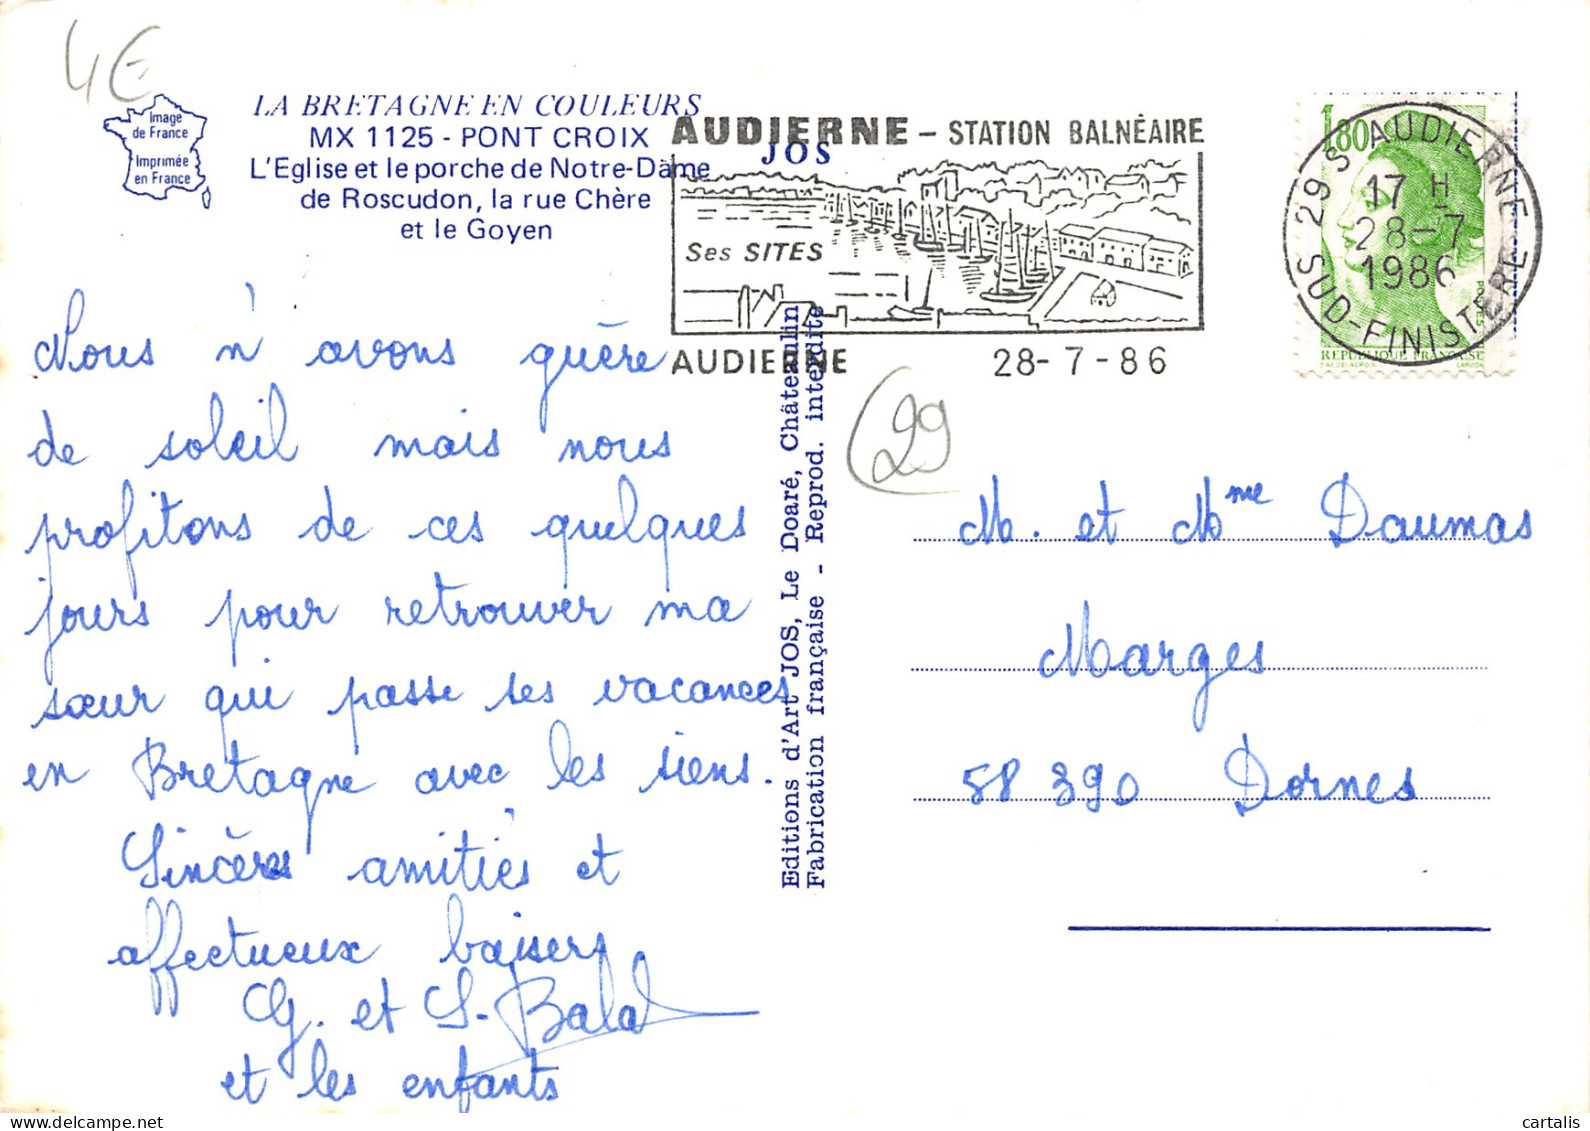 4€
Image
de France
Imprimée
en France
LA BRETAGNE EN COULEURS
MX 1125 - PONT CROIX
L'Eglise et le porche de Notre-Dame
de Roscudon, la rue Chère
et le Goyen
JOS
AUDIERNE - STATION BALNÉAIRE
Ses SITES
AUDIERNE 28-7-86
1,80
S 29 S AUDIERNE
17 H
28-7
1986
SUD-FINISTERE
POSTES
REPUBLIQUE FRANÇAISE
Nous n'avons guère
de soleil mais nous
profitons de ces quelques
jours pour retrouver ma
sœur qui passe ses vacances
en Bretagne avec les siens.
Sincères amitiés et
affectueux baisers
G. et S. Balad
et les enfants
Editions d'Art JOS, Le Doaré, Châteaulin
Fabrication française - Reprod. interdite
29
M. et Mme Daumas
Marges
58 390 Dornes
cartalis
www.delcampe.net